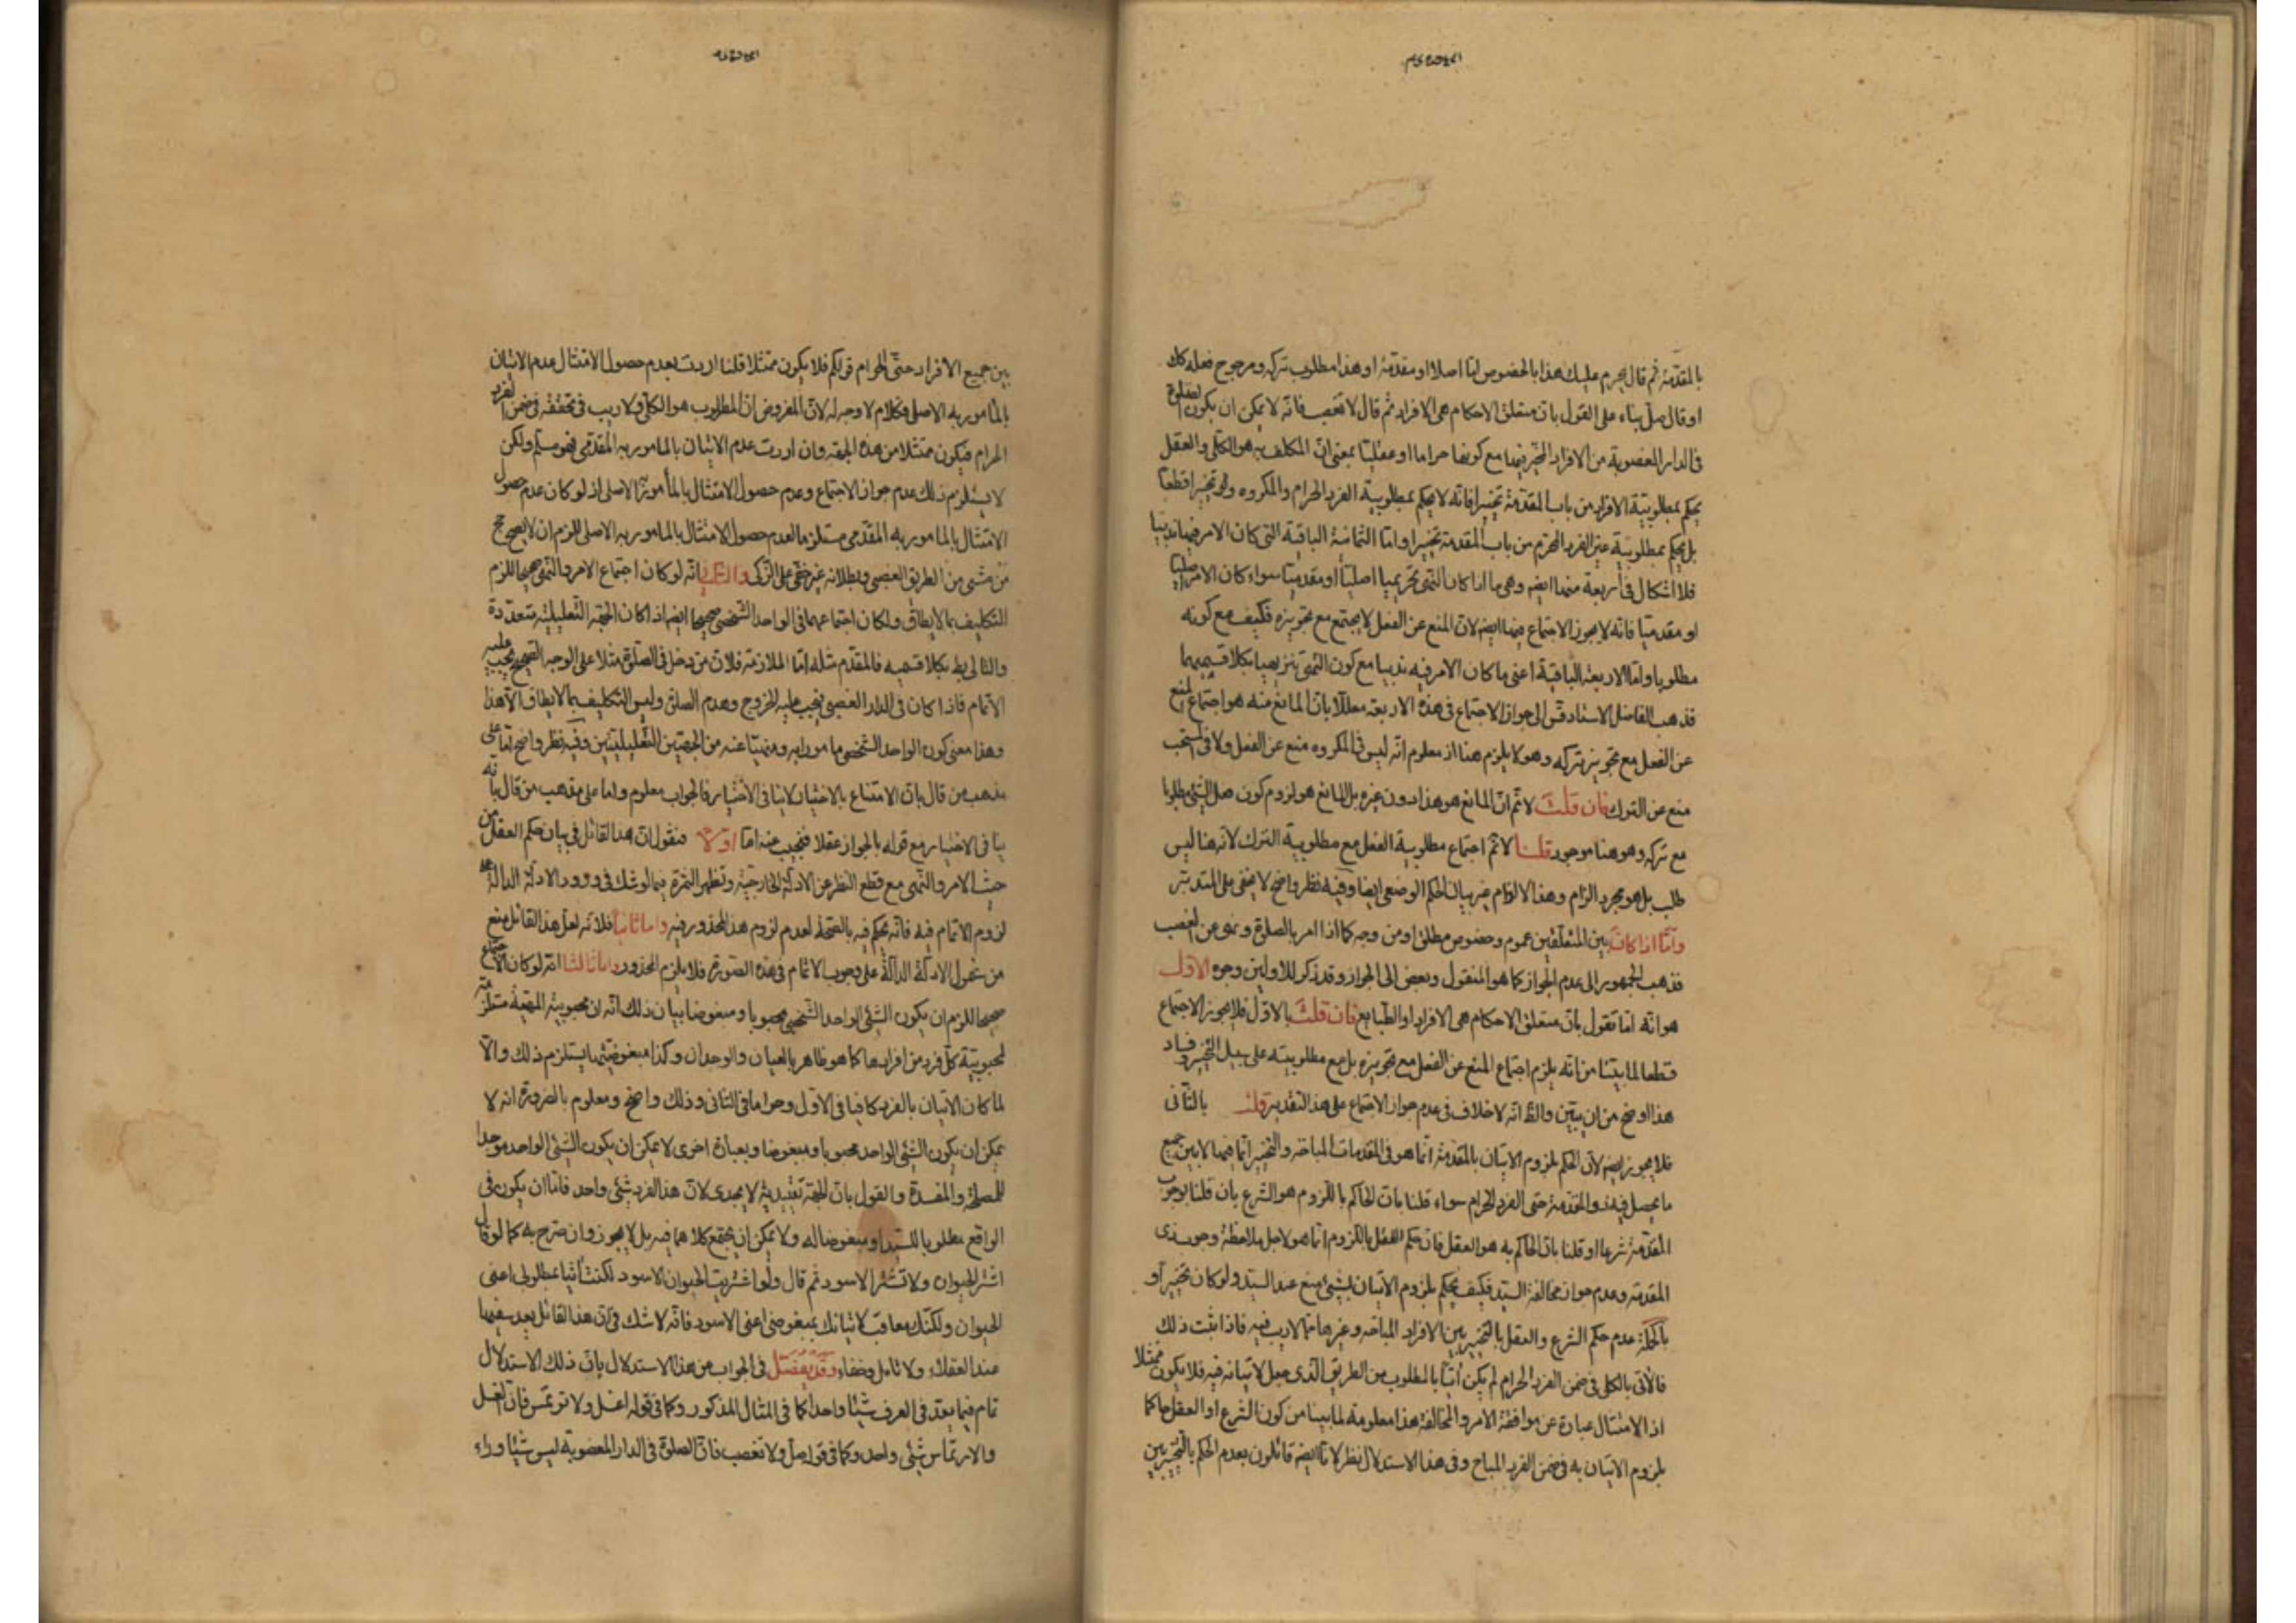 بالمقدّمة ثم قال يحرم عليك هذا بالخصوص اما اصلا او مقدّمة او هذا مطلوب تركه ومرجوح فعله كك
او قال صلّ بناء على القول بان متعلق الاحكام هى الافراد ثم قال لا تغصب فانه لا يمكن ان يكون الصلوة
فى الدار المغصوبة من الافراد المخيّر فيها مع كونها حراما او عقليّا بمعنى انّ المكلف به هو الكلى والعقل
يحكم بمطلوبيّة الافراد من باب المقدّمة تخييرا فانه لا يحكم بمطلوبية الفرد الحرام والمكروه ولو تخييرا قطعا
بل يحكم بمطلوبية غير الفرد المحرّم من باب المقدمة تخييرا وامّا الثمانية الباقية التى كان الامر فيها ندبيا
فلا اشكال فى أربعة منها ايضا وهى ما اذا كان النهى تحريميا اصليّا او مقدميّا سواء كان الامر اصليا
او مقدميا فانه لا يجوز الاجتماع فيها ايضا لان المنع عن الفعل لا يجتمع مع تجويزه فكيف مع كونه
مطلوبا وامّا الاربعة الباقية اعنى ما كان الامر فيه ندبيا مع كون النهى تنزيهيا بكلا قسميهما
فذهب الفاضل الاستاد الى جواز الاجتماع فى هذه الاربعة معللا بان المانع منه هو اجتماع المنع
عن الفعل مع تجويز تركه وهو لا يلزم هنا اذ معلوم انّه ليس فى المكروه منع عن الفعل ولا فى المستحب
منع عن الترك فان قلت لا نم انّ المانع هو هذا دون غيره بل المانع هو لزوم كون فعل الشئ مطلوبا
مع تركه وهو هنا موجود قلنا لا نم اجتماع مطلوبية الفعل مع مطلوبية الترك لانه هنا ليس
طلب بل هو مجرد الزام وهذا الالزام من باب الحكم الوضعى ايضا وفيه نظر واضح لا يخفى على المتدبّر
وامّا اذا كان بين المتعلقين عموم وخصوص مطلق او من وجه كما اذا امر بالصلوة ونهى عن الغصب
فذهب الجمهور الى عدم الجواز كما هو المنقول وبعض الى الجواز وقد ذكر للاولين وجوه الاوّل
هو انه امّا تقول بان متعلق الاحكام هى الافراد او الطبايع فان قلت بالاوّل فلا يجوز الاجتماع
قطعا لما بيّنا من انه يلزم اجتماع المنع عن الفعل مع تجويزه بل مع مطلوبيته على سبيل التخيير وفساد
هذا اوضح من ان يبيّن والظ انه لا خلاف فى عدم جواز الاجتماع على هذا التقدير وقلت بالثانى
فلا يجوز ايضا لان الحكم بلزوم الاتيان بالمقدّمة انّما هو فى المقدمات المباحة والتخيير انّما فيها لا بين جميع
ما يحصل فيه ذو المقدّمة حتى الفرد الحرام سواء قلنا بان الحاكم باللزوم هو الشرع بان قلنا بوجوب
المقدّمة شرعا او قلنا بان الحاكم به هو العقل فان حكم العقل باللزوم انّما هو لاجل ملاحظة وجوب ذى
المقدمة وعدم جواز مخالفة السيّد فكيف يحكم بلزوم الاتيان بشئ منع عنه السيّد ولو كان تخييرا و
بالجملة عدم حكم الشرع والعقل بالتخيير بين الافراد المباحة وغيرها ممّا لا ريب فيه فاذا ثبت ذلك
فالآتى بالكلى فى ضمن الفرد الحرام لم يكن آتيا بالمطلوب من الطريق الّذى جعل لاتيانه فيه فلا يكون ممتثلا
اذ الامتثال عبارة عن موافقة الامر والمخالفة هنا معلومة لما بينا من كون الشرع او العقل حاكما
بلزوم الاتيان به فى ضمن الفرد المباح وفى هذا الاستدلال نظر لانّا ايضا قائلون بعدم الحكم بالتخيير بين
بين جميع الافراد حتّى الحرام قولكم فلا يكون ممتثلا قلنا اردت بعدم حصول الامتثال عدم الاتيان
بالمأمور به الاصلى فكلام لا وجه له لان المفروض انّ المطلوب هو الكلّى ولا ريب فى تحققه فى ضمن الفرد
الحرام فيكون ممتثلا من هذه الجهة وان اردت عدم الاتيان بالمامور به المقدّمى فهو مسلّم ولكن
لا يستلزم ذلك عدم جواز الاجتماع وعدم حصول الامتثال بالمأمور به الاصلى اذ لو كان عدم حصول
الامتثال بالمامور به المقدّمى مستلزما لعدم حصول الامتثال بالمامور به الاصلى للزم ان لا يصحّ حج
من مشى من الطريق الغصبى وبطلانه غير خفى على الزّكى والثانى انّه لو كان اجتماع الامر والنهى صحيحا للزم
التكليف بما لا يطاق ولكان اجتماعهما فى الواحد الشخصى صحيحا ايضا اذا كان الجهة التعليلية متعدّدة
والتالى بط بكلا قسميه فالمقدّم مثله امّا الملازمة فلان من دخل فى الصلوة مثلا على الوجه الصحيح يجب عليه
الاتمام فاذا كان فى الدار الغصبى يجب عليه الخروج وهدم الصلوة وليس التكليف بما لا يطاق الّا هذا
وهذا معنى كون الواحد الشخصى مامورا به ومنهيّا عنه من الجهتين التعليليتين وفيه نظر واضح امّا على
مذهب من قال بان الامتناع بالاختيار لا ينافى الاختيار فالجواب معلوم وامّا على مذهب من قال بانّه
ينافى الاختيار مع قوله بالجواز عقلا فنجيب عنه امّا اوّلا فنقول ان هذا القائل فى بيان حكم العقل من
حيث الامر والنهى مع قطع النظر عن الادلّة الخارجيّة وتظهر الثمرة فيما لو شك فى ورود الادلّة الدالة على
لزوم الاتمام فيه فانّه يحكم فيه بالصّحة لعدم لزوم هذا المحذور فيه وامّا ثانيا فلانّه لعل هذا القائل منع
من شمول الادلّة الدالّة على وجوب الاتمام فى هذه الصّورة فلا يلزم المحذور وامّا ثالثا انّه لو كان الاجتماع
صحيحا للزم ان يكون الشئ الواحد الشخصى محبوبا ومبغوضا بيان ذلك انّه ان محبوبيّة المهيّة مستلزمة
لمحبوبيّة كلّ فرد من افرادها كما هو ظاهر بالعيان والوجدان وكذا مبغوضيّتها يستلزم ذلك والّا
لما كان الاتيان بالفرد كافيا فى الاوّل وحراما فى الثانى وذلك واضح ومعلوم بالضرورة انه لا
يمكن ان يكون الشئ الواحد محبوبا ومبغوضا وبعبارة اخرى لا يمكن ان يكون الشئ الواحد موجدا
للمصلحة والمفسدة والقول بان الجهة تقييدية لا يجدى لان هذا الفرد شئ واحد فامّا ان يكون فى
الواقع مطلوبا للسيّد او مبغوضا له ولا يمكن ان يجتمع كلاهما فيه بل لا يجوز وان صرّح به كما لو قال
اشتر الحيوان ولا تشتر الاسود ثم قال ولو اشتريت الحيوان الاسود لكنت آتيا بمطلوبى اعنى
الحيوان ولكنّك معاقب لاتيانك بمبغوضى اعنى الاسود فانّه لا شك فى ان هذا القائل يعد سفيها
عند العقلاء ولا تامل وخفاء وقد يفصّل فى الجواب عن هذا الاستدلال بان ذلك الاستدلال
تام فيما يعدّ فى العرف شيئا واحدا كما فى المثال المذكور وكما فى قوله اغسل ولا ترتمس فان الغسل
والارتماس شئ واحد وكما فى قوله صلّ ولا تغصب فان الصلوة فى الدار المغصوبة ليس شيئا وراء